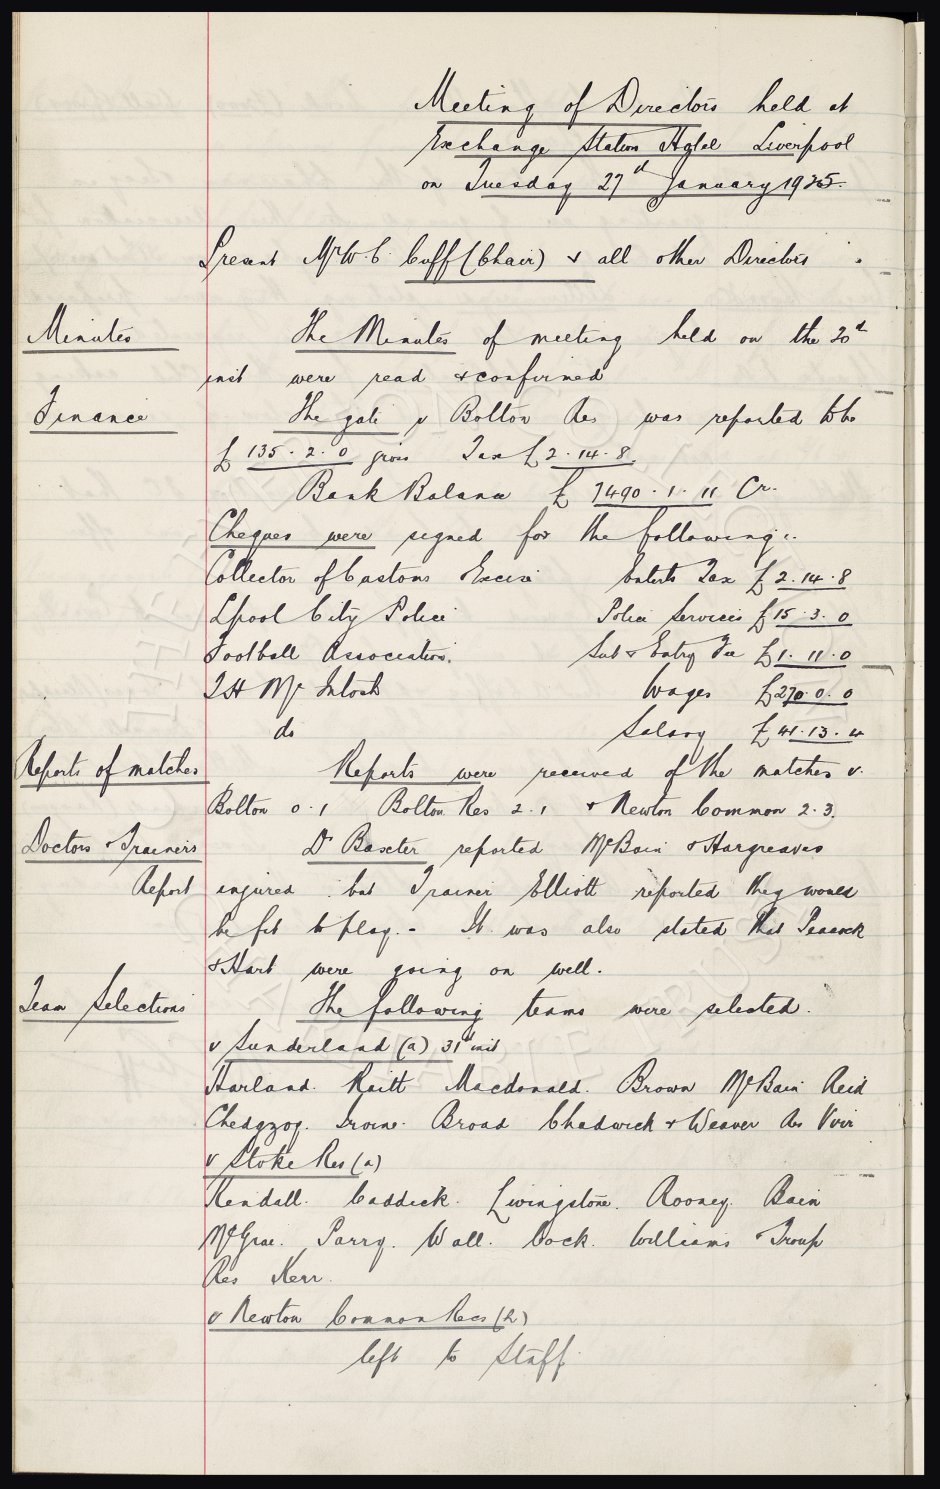 Meeting of Directors held at
Exchange Station Hotel Liverpool
on Tuesday 27th January 1925.
Present Mr W. C. Cuff (Chair) & all other Directors.
Minutes The Minutes of meeting held on the 20th
inst were read & confirmed
Finance The gate v Bolton Res was reported to be
£135.2.0 gross Tax £2.14.8.
Bank Balance £7490.1.11 Cr.
Cheques were signed for the following:-
Collector of Customs Excise Enterts Tax £2.14.8
Lpool City Police Police Services £15.3.0
Football Association. Sub & Entry Fee £1.11.0
T H McIntosh Wages £270.0.0
do Salary £41.13.4
Reports of matches Reports were received of the matches v.
Bolton 0.1 Bolton Res 2.1 & Newton Common 2.3.
Doctors & Trainers Dr Baxter reported McBain & Hargreaves
Report injured but Trainer Elliott reported they would
be fit to play.- It was also stated that Peacock
& Hart were going on well.
Team Selections The following teams were selected.
v Sunderland (a) 31st inst
Harland. Raitt Macdonald. Brown McBain Reid
Chedgzoy. Irvine. Broad Chadwick & Weaver Res Virr
v Stoke Res (a)
Kendall. Caddick. Livingstone. Rooney. Bain
McGrae. Parry. Wall. Cock. Williams & Troup
Res Kerr.
v Newton Common Recs (h)
left to Staff.